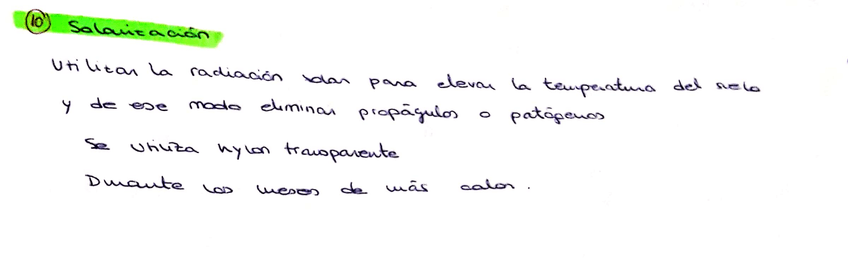 10 Solarización
Utilizar la radiación solar para elevar la temperatura del suelo
y de ese modo eliminar propágulos o patógenos
Se utiliza nylon transparente
Durante los meses de más calor.